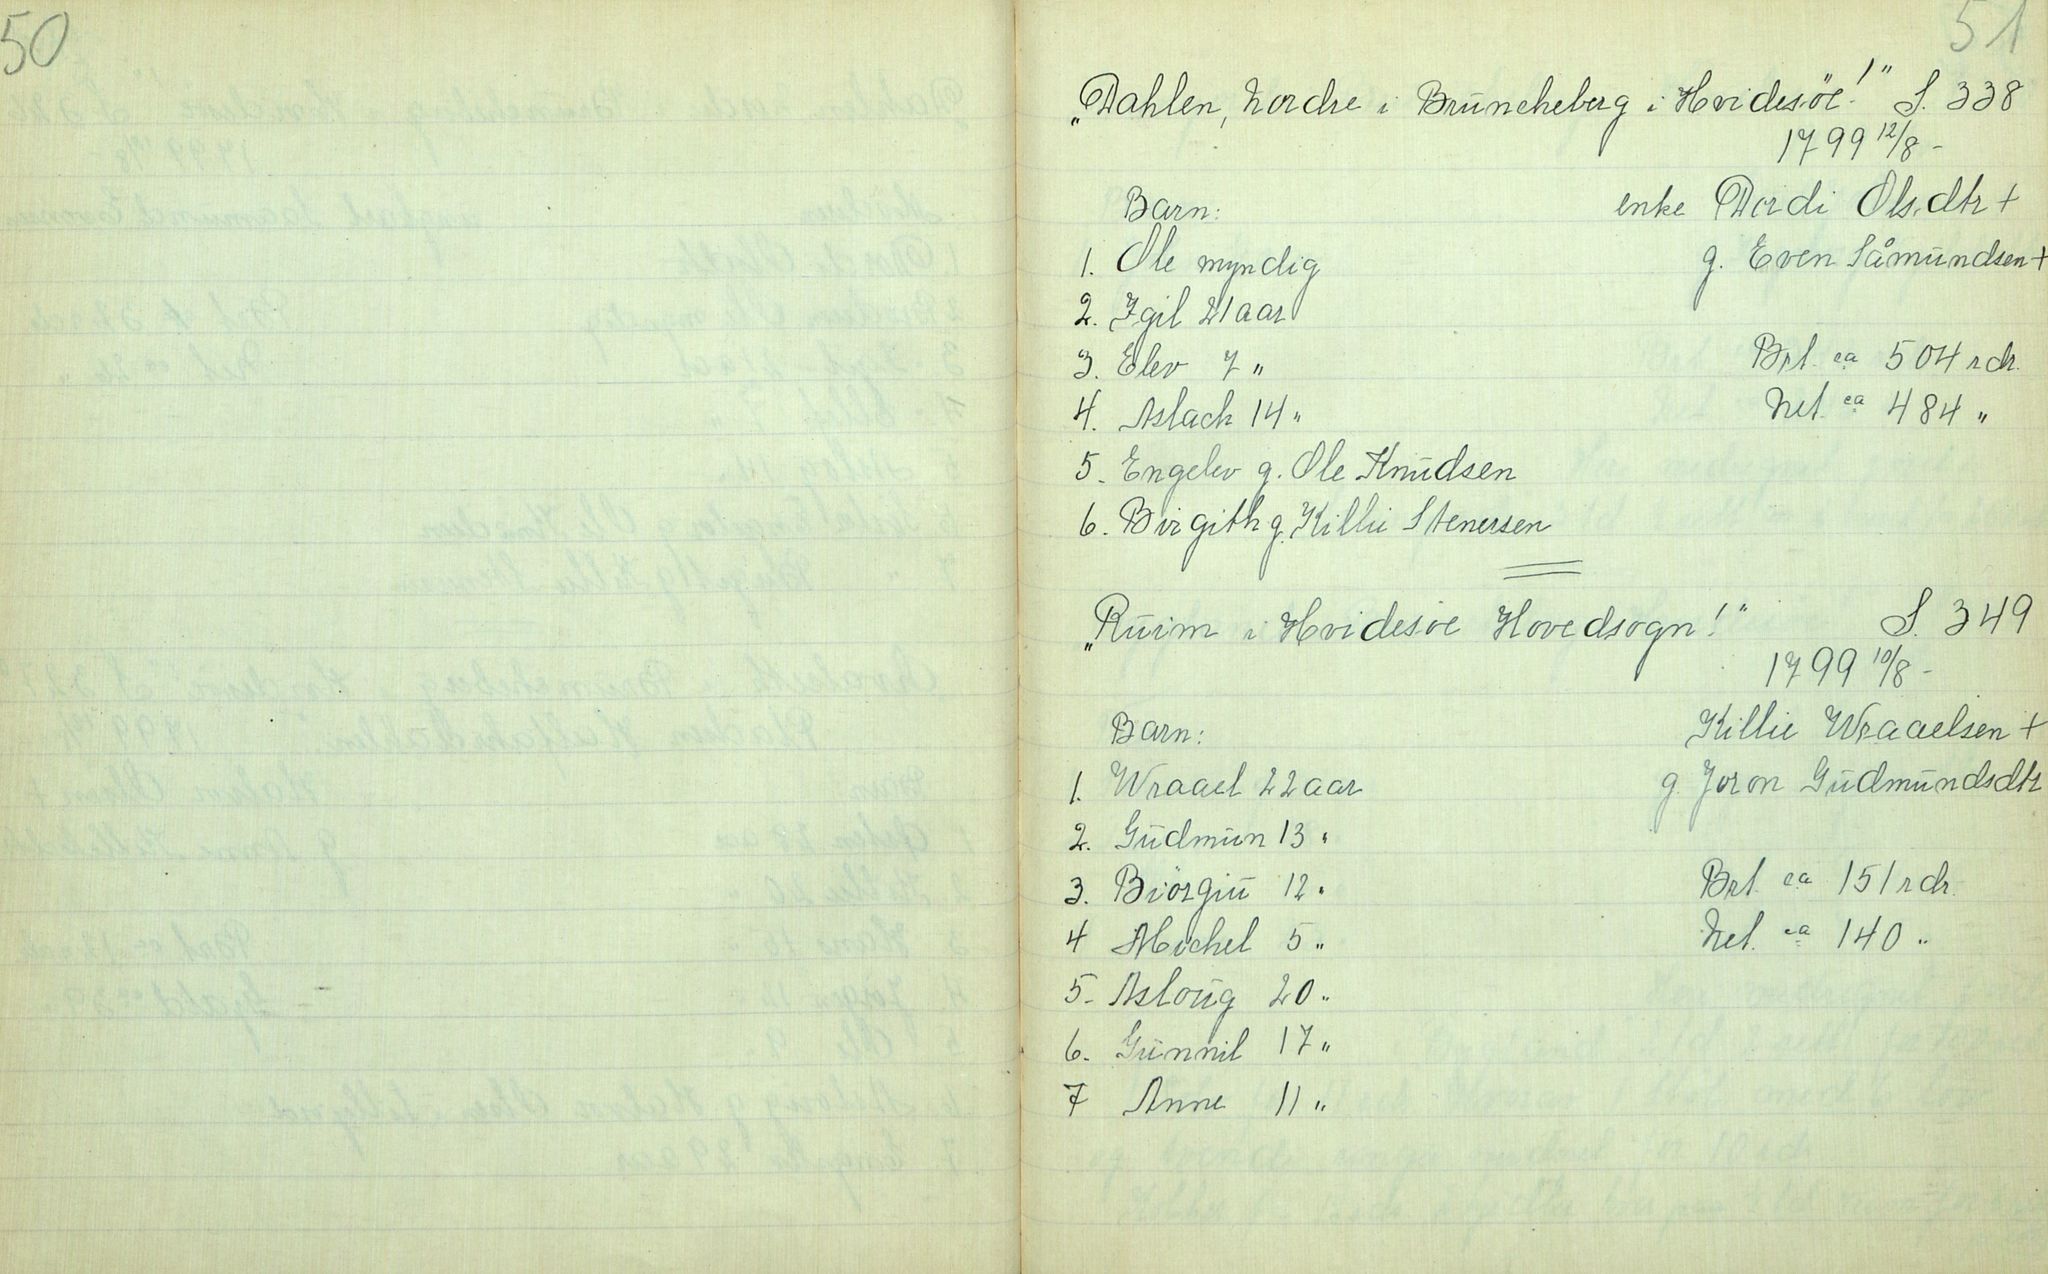 50
51
„Dahlen, Nordre i Brüncheberg i Hvidesöe!" S. 338
1799 12/8 -
Barn: enke Dordi Olsdtr +
1. Ole myndig g. Even Såmündsen +
2. Igil 21 aar
3. Elev 7 " Brt. ca 504 rdr.
4. Aslach 14 " Net. ca 484 "
5. Engelev g. Ole Knüdsen
6. Birgith g. Killie Stenersen
„Rüim i Hvidesöe Hovedsogn!" S. 349
1799 10/8 -
Barn: Killie Wraaelsen +
1. Wraael 22 aar g. Joron Güdmündsdtr
2. Güdmün 13 "
3. Biörgiü 12 " Brt. ca 151 rdr.
4 Michel 5 " Net. ca 140 "
5. Asloüg 20 "
6. Günnil 17 "
7 Anne 11 "